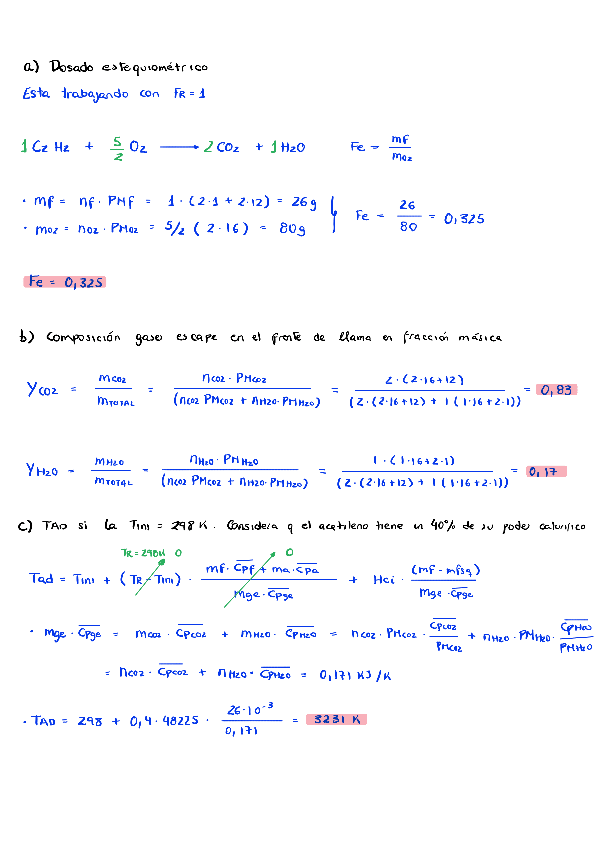 a) Dosado estequiométrico
Esta trabajando con FR = 1
1 C2 H2 + 5/2 O2 → 2 CO2 + 1 H2O Fe = mf / mO2
· mf = nf · PMf = 1 · (2·1 + 2·12) = 26g
· mO2 = nO2 · PMO2 = 5/2 (2·16) = 80g
Fe = 26 / 80 = 0,325
Fe = 0,325
b) Composición gases escape en el frente de llama en fracción másica
YCO2 = mCO2 / mTOTAL = nCO2 · PMCO2 / (nCO2 PMCO2 + nH2O · PMH2O) = 2 · (2·16+12) / (2·(2·16+12) + 1 (1·16+2·1)) = 0,83
YH2O = mH2O / mTOTAL = nH2O · PMH2O / (nCO2 PMCO2 + nH2O · PMH2O) = 1 · (1·16+2·1) / (2·(2·16+12) + 1 (1·16+2·1)) = 0,17
c) TAD si la Tini = 298 K. Considera q el acetileno tiene un 40% de su poder calorífico
TR = 298K 0 0
Tad = Tini + (TR - Tini) · mf · Cpf + ma · Cpa / mge · Cpge + Hci · (mf - mfsq) / mge · Cpge
· mge · Cpge = mCO2 · CpCO2 + mH2O · CpH2O = nCO2 · PMCO2 · CpCO2 / PMCO2 + nH2O · PMH2O · CpH2O / PMH2O
= nCO2 · CpCO2 + nH2O · CpH2O = 0,171 KJ/K
· TAD = 298 + 0,4 · 48225 · 26·10⁻³ / 0,171 = 3231 K